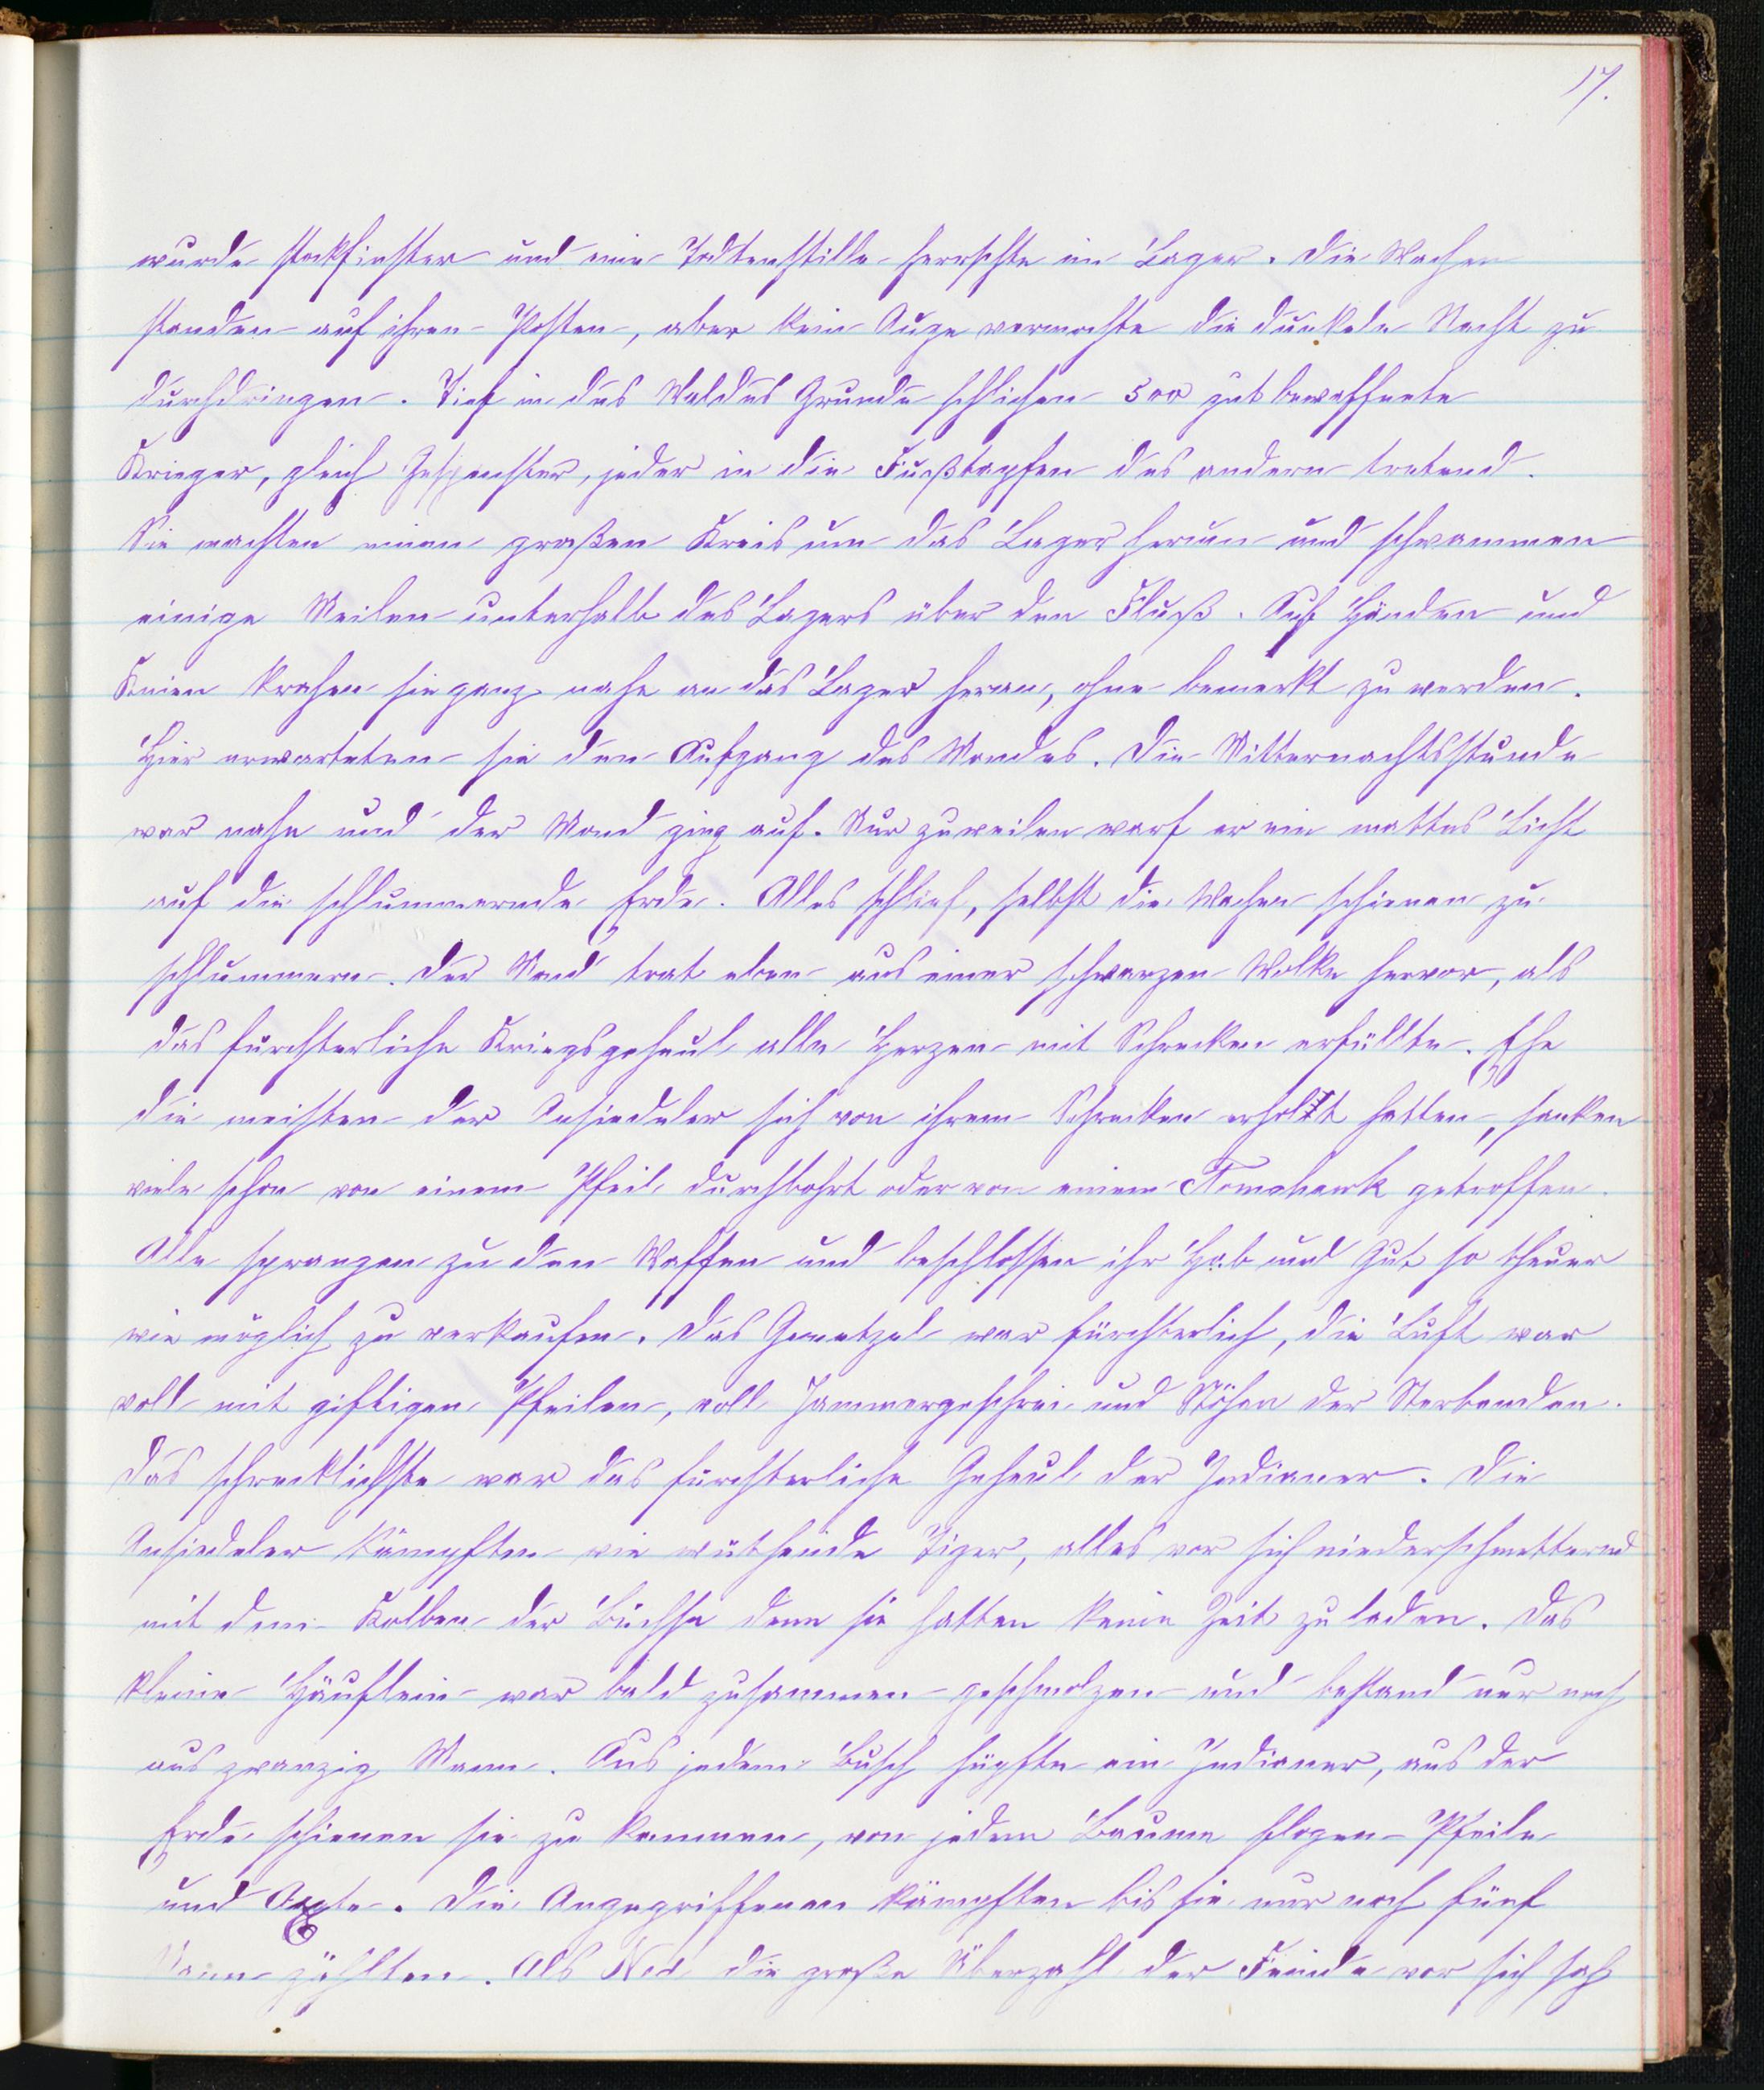 17.
wurde stockfinster und eine Todtenstille herrschte im Lager. Die Wachen
standen auf ihren Posten, aber kein Auge vermochte die dunkele Nacht zu
durchdringen. Tief in des Waldes Grunde schlichen 500 gut bewaffnete
Krieger, gleich Gespenster, jeder in die Fußtapfen des andern tretend.
Sie machten einen großen Kreis um das Lager herum und schwammen
einige Meilen unterhalb des Lagers über den Fluß. Auf Händen und
Knien krochen sie ganz nahe an das Lager heran, ohne bemerkt zu werden.
Hier erwarteten sie den Aufgang des Mondes. Die Mitternachtsstunde
war nahe und der Mond ging auf. Nur zuweilen warf er ein mattes Licht
auf die schlummernde Erde. Alles schlief, selbst die Wachen schienen zu
schlummern. Der Mond trat eben aus einer schwarzen Wolke hervor, als
das fürchterliche Kriegsgeheul alle Herzen mit Schrecken erfüllte. Ehe
die meisten der Ansiedeler sich von ihrem Schrecken erholt hatten, sanken
viele schon von einem Pfeil durchbohrt oder von einem Tomahawk getroffen.
Alle sprangen zu den Waffen und beschlossen ihr Hab und Gut so theuer
wie möglich zu verkaufen. Das Gemetzel war fürchterlich, die Luft war
voll mit giftigen Pfeilen, voll Jammergeschrei und Stöhen der Sterbenden.
Das schrecklichste war das fürchterliche Geheul der Indianer. Die
Ansiedeler kämpften wie wüthende Tiger, alles vor sich niederschmetternd
mit dem Kolben der Büchse denn sie hatten keine Zeit zu laden. Das
kleine Häuflein war bald zusammen-geschmolzen und bestand nur noch
aus zwanzig Mann. Aus jedem Busch hüpfte ein Indianer, aus der
Erde schienen sie zu kommen, von jedem Baume flogen Pfeile
und Aexte. Die Angegriffenen kämpften bis sie nur noch fünf
Mann zählten. Als Ned die große Überzahl der Feinde vor sich sah